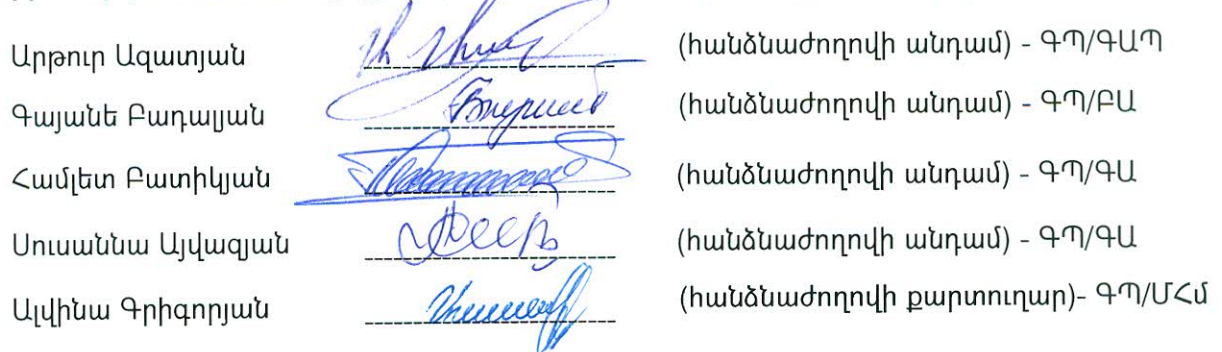 Արթուր Ազատյան (հանձնաժողովի անդամ) - ԳՊ/ԳԱՊ
Գայանե Բադալյան (հանձնաժողովի անդամ) - ԳՊ/ԲԱ
Համլետ Բատիկյան (հանձնաժողովի անդամ) - ԳՊ/ԳԱ
Սուսաննա Այվազյան (հանձնաժողովի անդամ) - ԳՊ/ԳԱ
Ալվինա Գրիգորյան (հանձնաժողովի քարտուղար)- ԳՊ/ՄՀմ